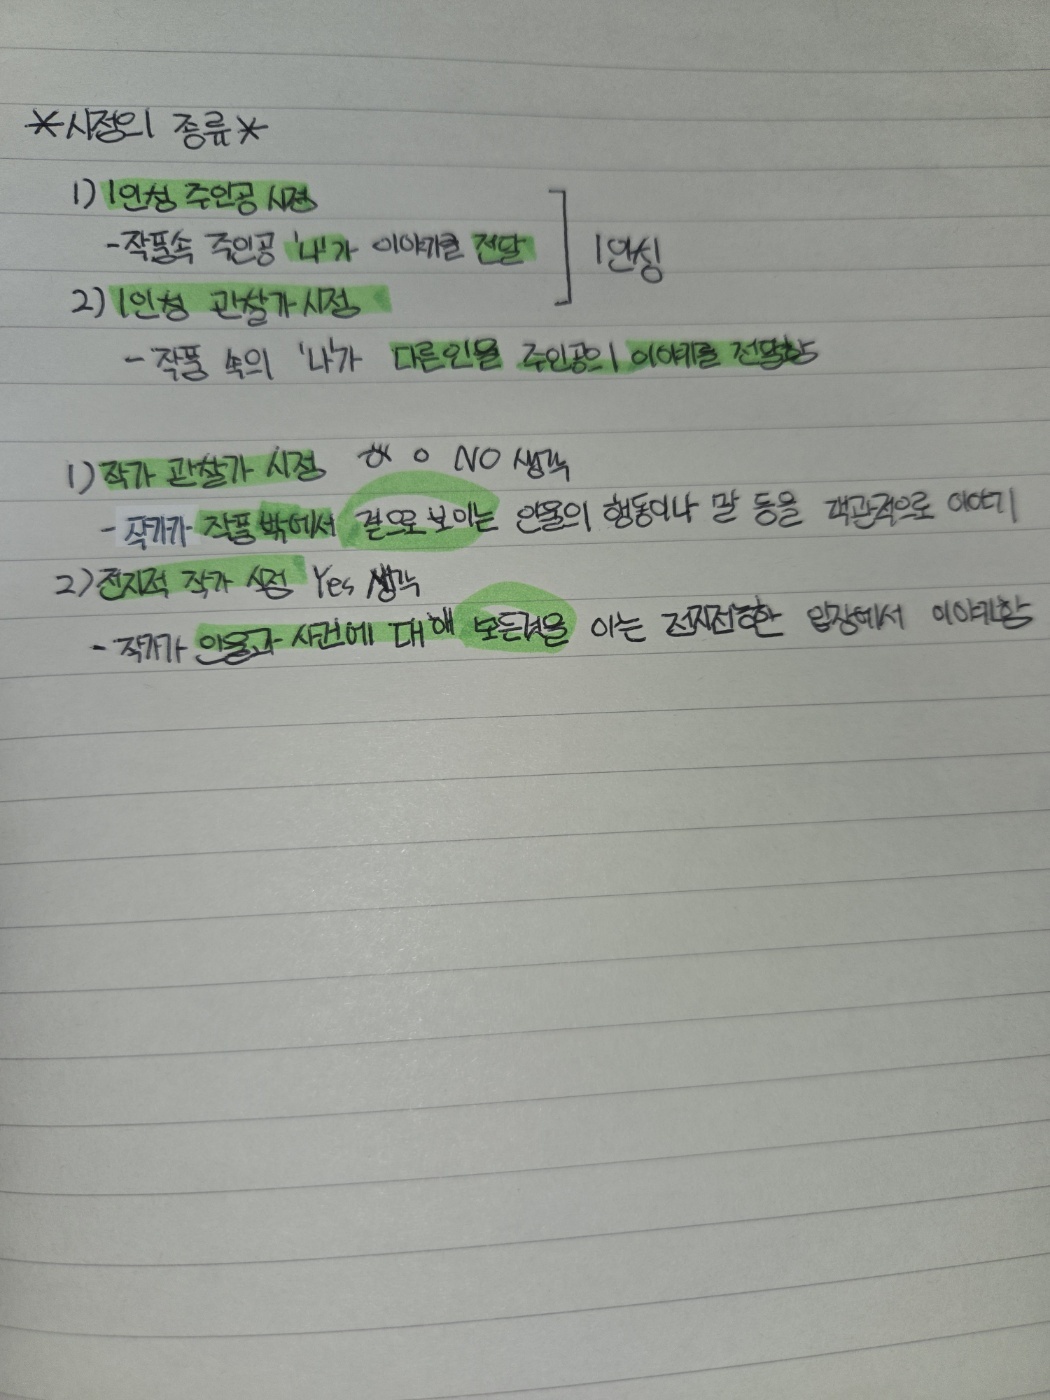 *시점의 종류*
1) 1인칭 주인공 시점
-작품속 주인공 '나'가 이야기를 전달
1인칭
2) 1인칭 관찰자 시점
- 작품 속의 '나'가 다른인물 주인공의 이야기를 전달함
1) 작가 관찰자 시점 NO 생각
- 작가가 작품 밖에서 겉으로 보이는 인물의 행동이나 말 등을 객관적으로 이야기
2) 전지적 작가 시점 Yes 생각
- 작가가 인물과 사건에 대해 모든것을 아는 입장에서 이야기함